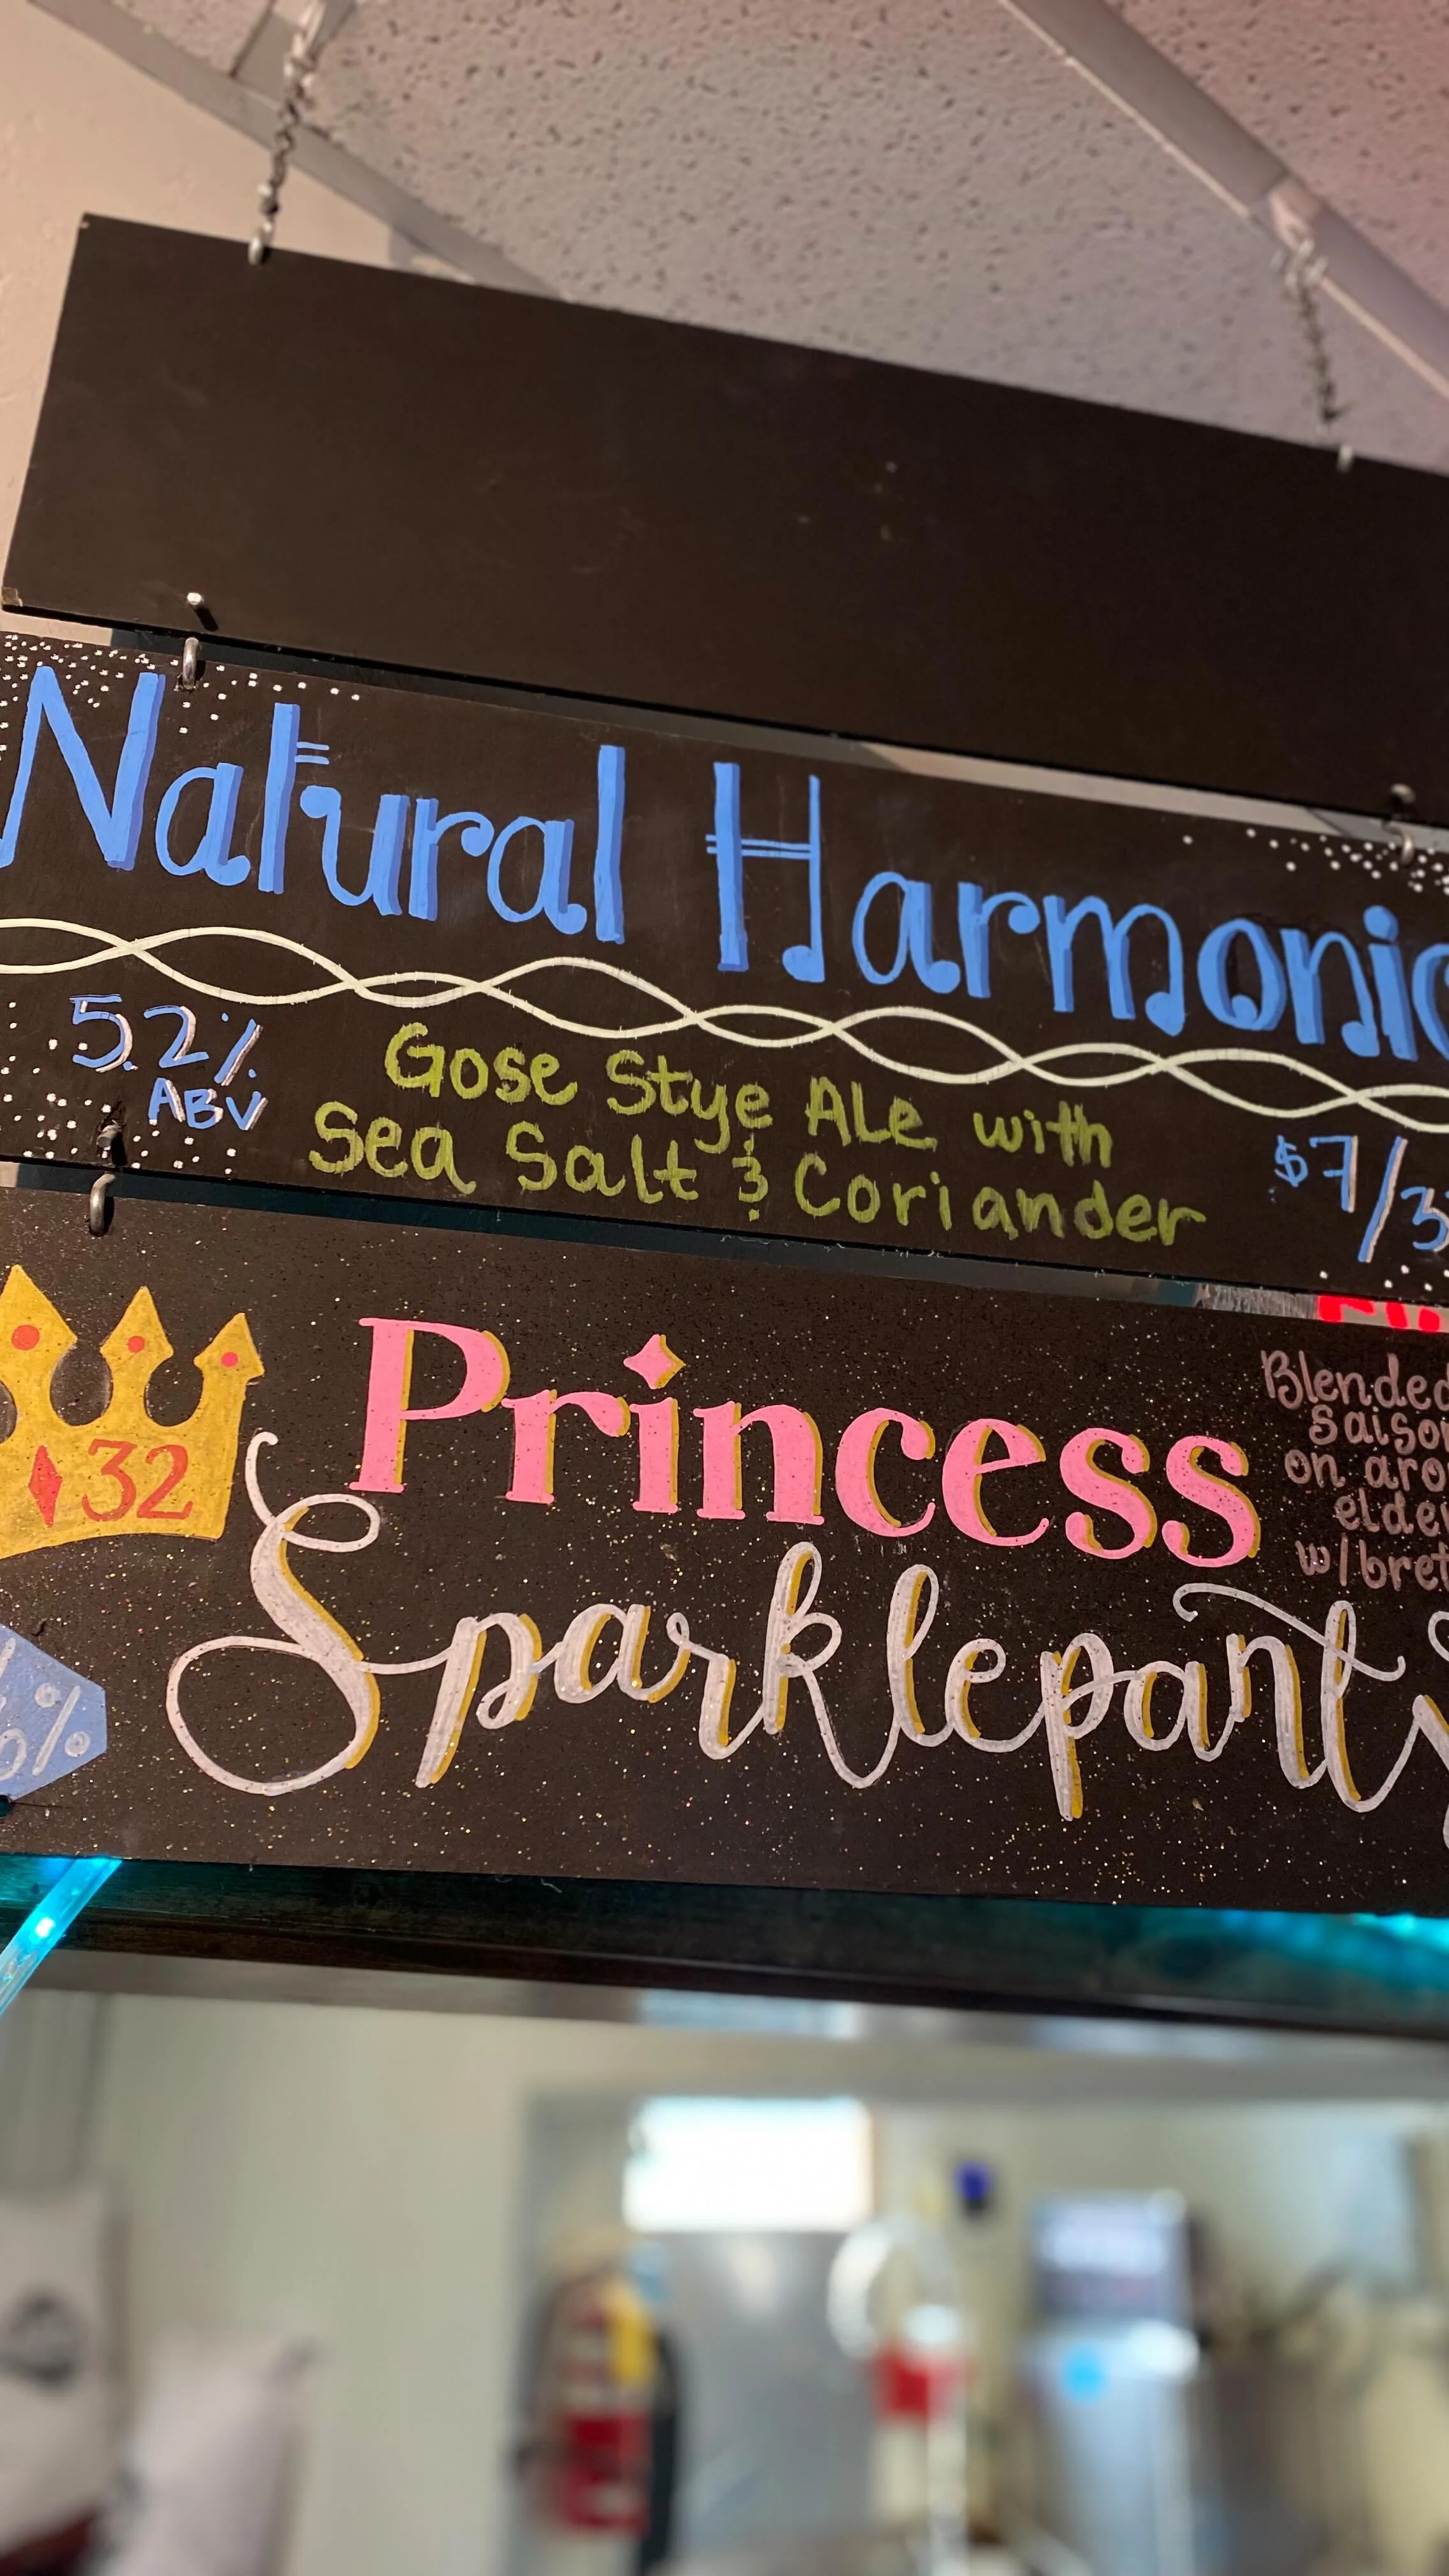 Natural Harmonic
5.2%
ABV
Gose Stye ALe with
Sea Salt & Coriander
$7/3
32
Princess
Sparkleparty
Blended
saison
on
w/bret
6%